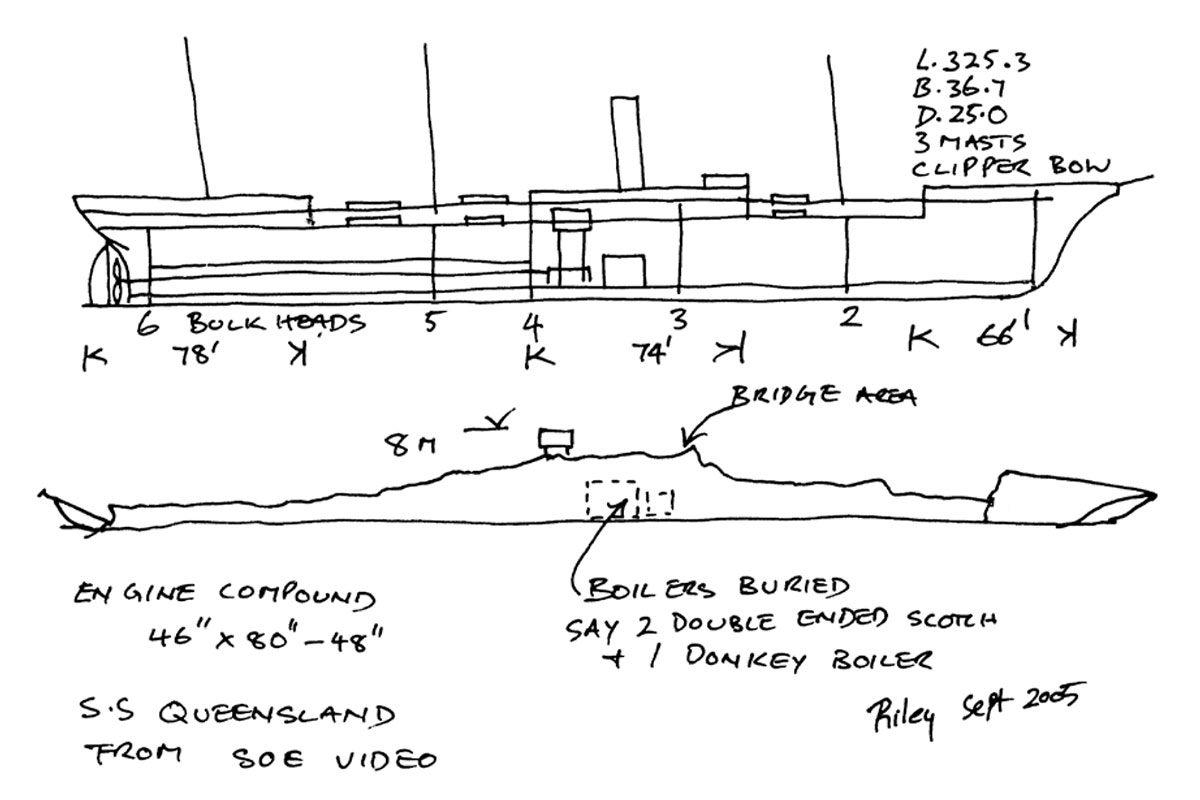 L. 325.3
B. 36.7
D. 25.0
3 MASTS
CLIPPER BOW
6 BULK HEADS 5 4 3 2
K 78' K K 74' K K 66' K
BRIDGE AREA
8 M
ENGINE COMPOUND
46" x 80" - 48"
BOILERS BURIED
SAY 2 DOUBLE ENDED SCOTCH
+ 1 DONKEY BOILER
S.S QUEENSLAND
FROM SOE VIDEO
Riley Sept 2005